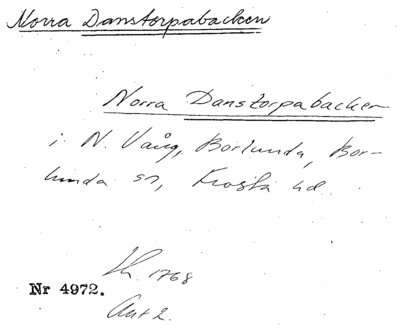 Norra Danstorpabacken
Norra Danstorpabacken
i N. Vång, Borlunda, Bor-
lunda sn, Frosta hd.
Lh. 1768
Nr 4972.
Akt 2.